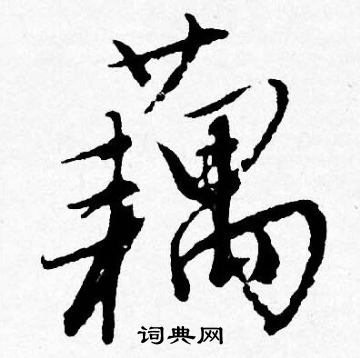 藕
词典网